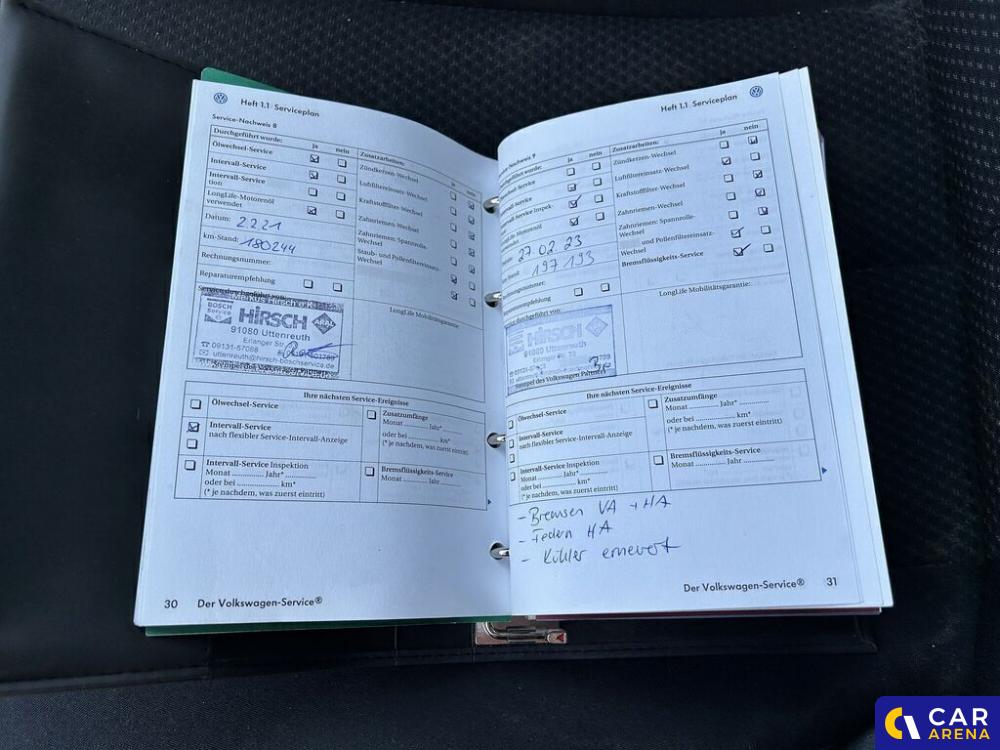 Heft 1.1 Serviceplan
Service-Nachweis 8
Durchgeführt wurde: ja nein
Ölwechsel-Service
Intervall-Service
Intervall-Service
tion
LongLife-Motorenöl
verwendet
Datum: 2.2.21
km-Stand: 180244
Rechnungsnummer:
Reparaturempfehlung
Service durchgeführt von:
Zusatzarbeiten: ja nein
Zündkerzen-Wechsel
Luftfiltereinsatz-Wechsel
Kraftstofffilter-Wechsel
Zahnriemen-Wechsel
Zahnriemen: Spannrolle-
Wechsel
Staub- und Pollenfiltereinsatz-
Wechsel
LongLife Mobilitätsgarantie:
BOSCH
Service
HIRSCH
ARAL
91080 Uttenreuth
Erlanger Str.
09131-57088
uttenreuth@hirsch-boschservice.de
Ihre nächsten Service-Ereignisse
Ölwechsel-Service
Intervall-Service
nach flexibler Service-Intervall-Anzeige
Intervall-Service Inspektion
Monat ............. Jahr* .............
oder bei ............. km*
(* je nachdem, was zuerst eintritt)
Zusatzumfänge
Monat ............. Jahr* .............
oder bei ............. km*
(* je nachdem, was zuerst eintritt)
Bremsflüssigkeits-Service
Monat ............. Jahr .............
30 Der Volkswagen-Service®
Heft 1.1 Serviceplan
-Nachweis 9
wurde: ja nein
-Service
-Service
-Service Inspek-
Motorenöl
27.02.23
197 193
nummer:
empfehlung
durchgeführt von:
Zusatzarbeiten: ja nein
Zündkerzen-Wechsel
Luftfiltereinsatz-Wechsel
Kraftstofffilter-Wechsel
Zahnriemen-Wechsel
Zahnriemen: Spannrolle-
Wechsel
und Pollenfiltereinsatz-
Wechsel
Bremsflüssigkeits-Service
LongLife Mobilitätsgarantie:
HIRSCH
91080 Uttenreuth
Stempel des Volkswagen Partners
Ihre nächsten Service-Ereignisse
Ölwechsel-Service
Intervall-Service
nach flexibler Service-Intervall-Anzeige
Intervall-Service Inspektion
Monat ............. Jahr* .............
oder bei ............. km*
(* je nachdem, was zuerst eintritt)
Zusatzumfänge
Monat ............. Jahr* .............
oder bei ............. km*
(* je nachdem, was zuerst eintritt)
Bremsflüssigkeits-Service
Monat ............. Jahr .............
- Bremsen VA + HA
- Federn HA
- Kühler erneuert
Der Volkswagen-Service® 31
CAR
ARENA